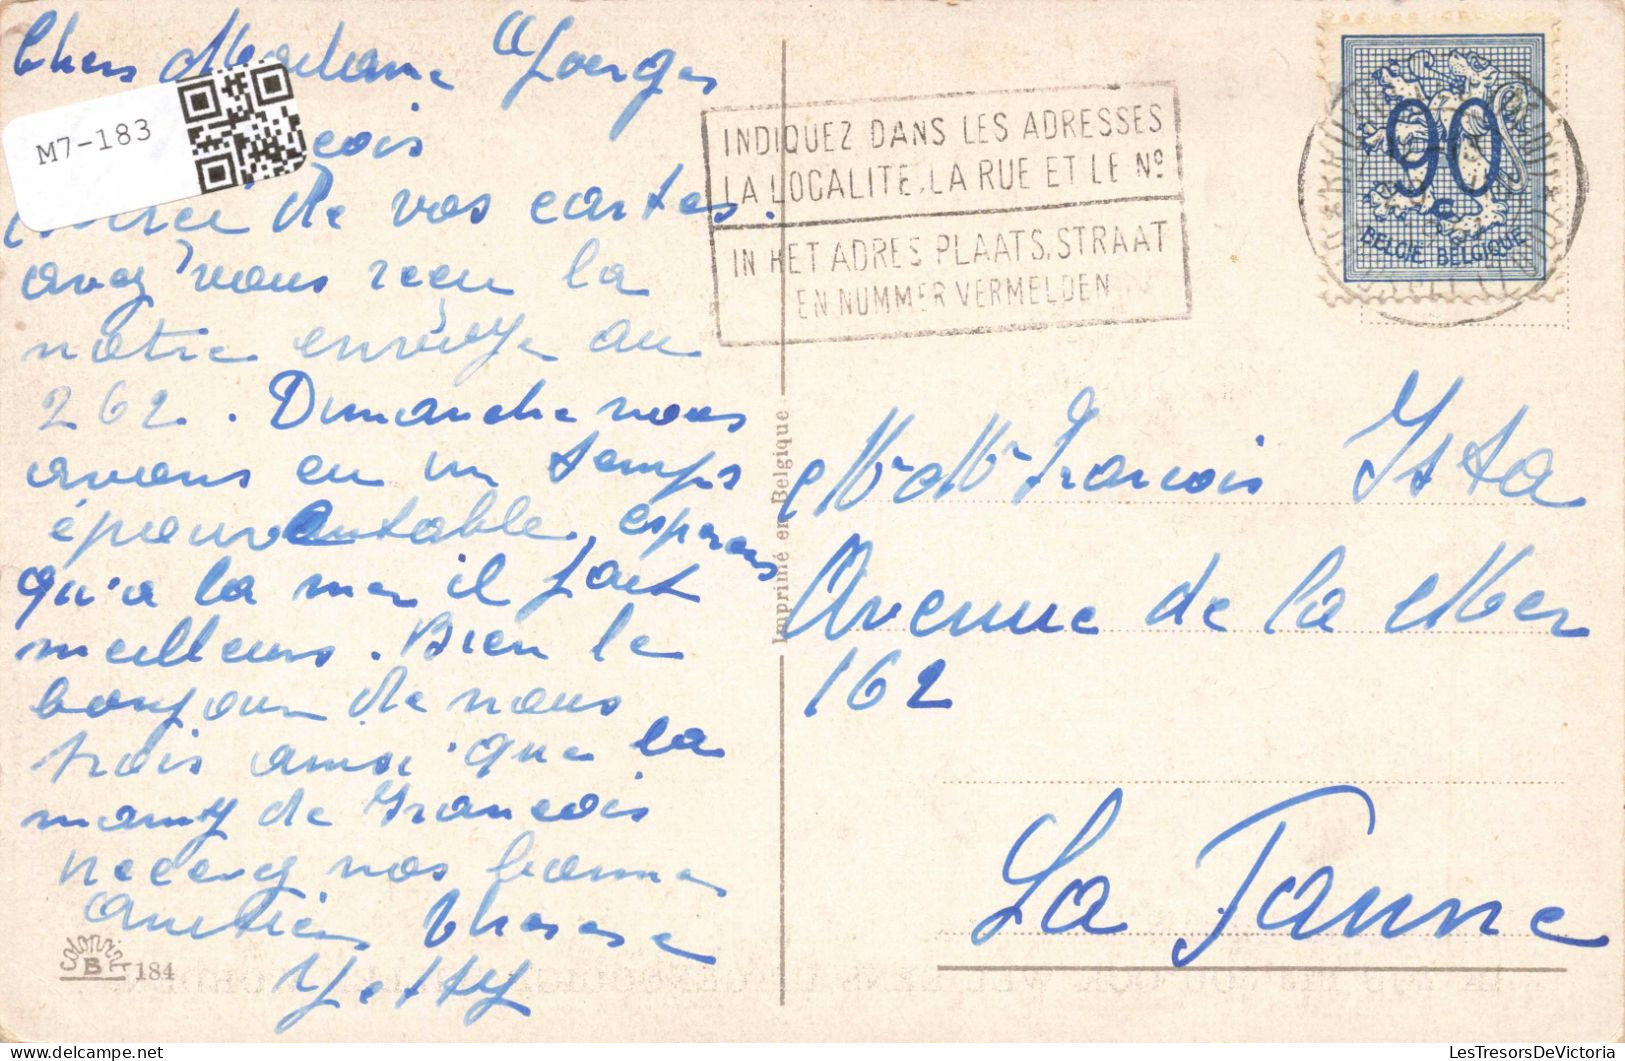 Chers Madame Georges
M7-183
çois
Merci de vos cartes.
avez vous reçu la
notre envoye au
262. Dimanche nous
avons eu un temps
épouvantable, esperons
qu'a la mer il fait
meilleurs. Bien le
bonjour de nous
trois ainsi que la
mamy de François
recevez nos bonnes
amitiés Therese
Yetty
colorvir
B 184
Imprimé en Belgique
INDIQUEZ DANS LES ADRESSES
LA LOCALITE, LA RUE ET LE Nº
IN HET ADRES PLAATS, STRAAT
EN NUMMER VERMELDEN
90
BELGIE BELGIQUE
Mr Mr François Ista
Avenue de la Mer
162
La Panne
LesTresorsDeVictoria.com